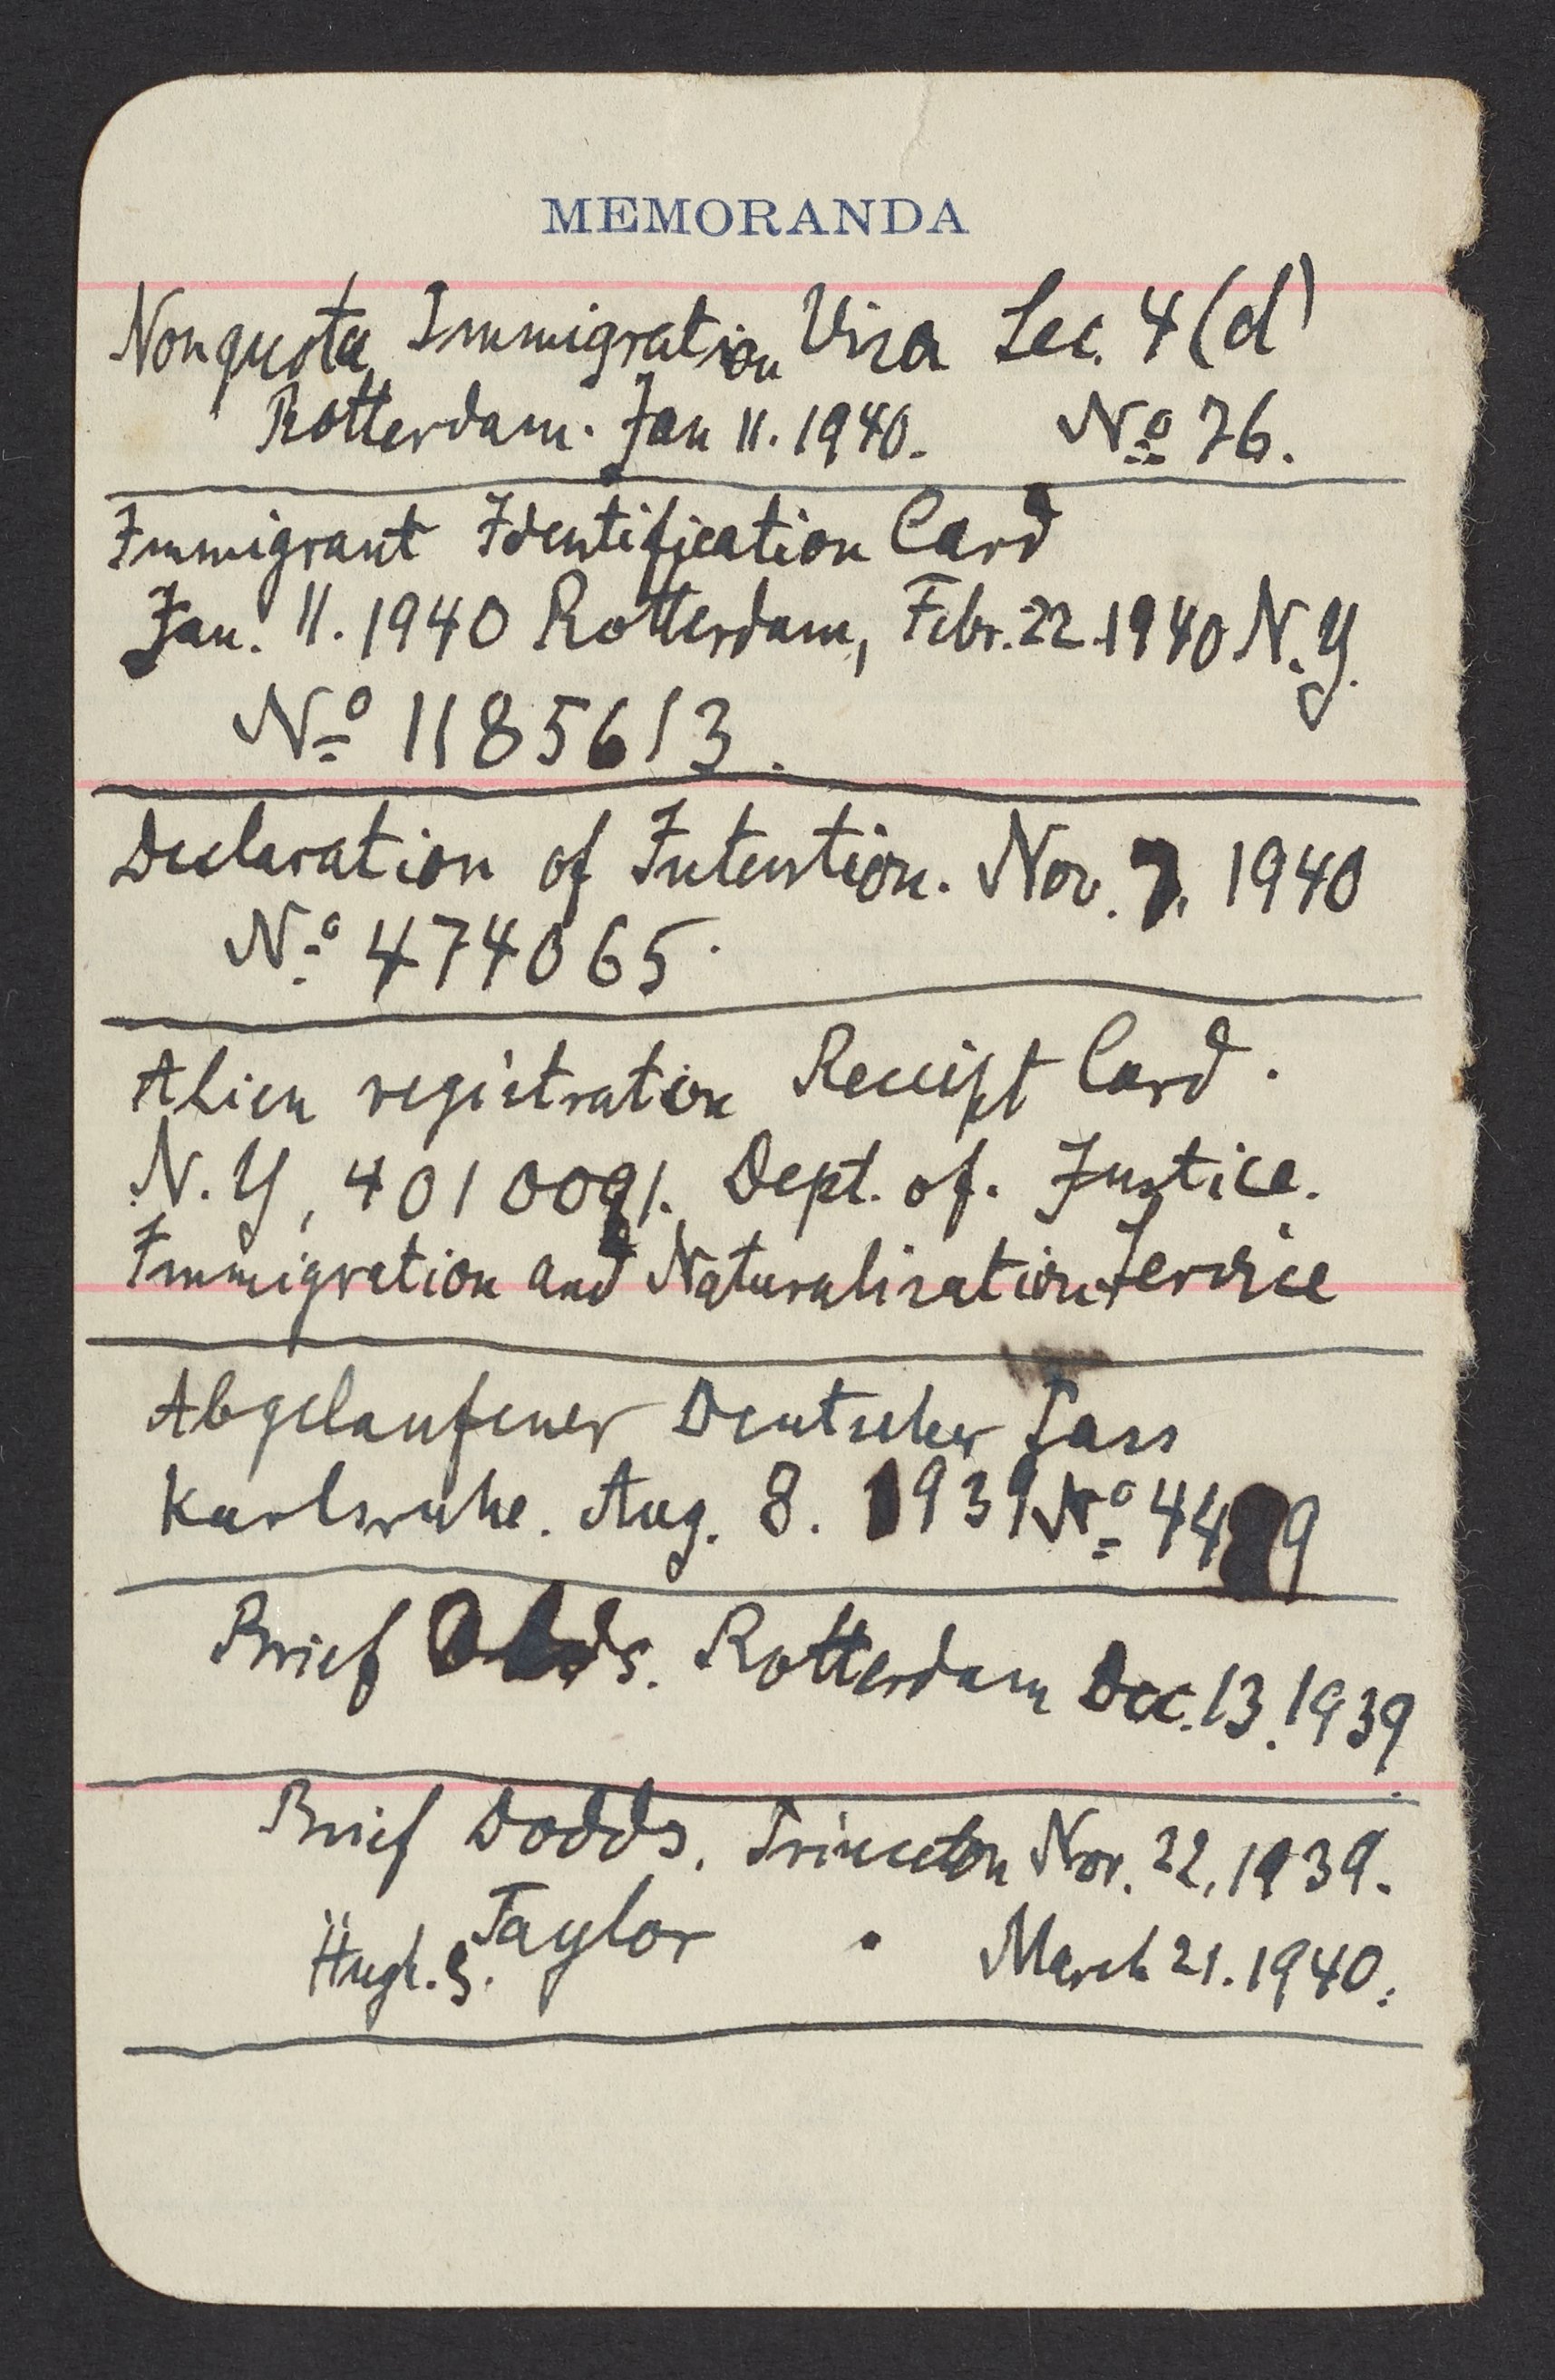 MEMORANDA
Nonquota Immigration Visa Sec. 4 (d)
Rotterdam. Jan 11. 1940. No 76.
Immigrant Identification Card
Jan. 11. 1940 Rotterdam, Febr. 22. 1940 N.Y.
No 1185613.
Declaration of Intention. Nov. 7. 1940
No 474065.
Alien registration Receipt Card.
N.Y, 4010091. Dept. of. Justice.
Immigration and Naturalization Service
Abgelaufener Deutscher Pass
Karlsruhe. Aug. 8. 1939 No
Brief Rotterdam Dec. 13. 1939
Brief Dodds. Princeton Nov. 22, 1939.
Hugh. S. Taylor " March 21. 1940.